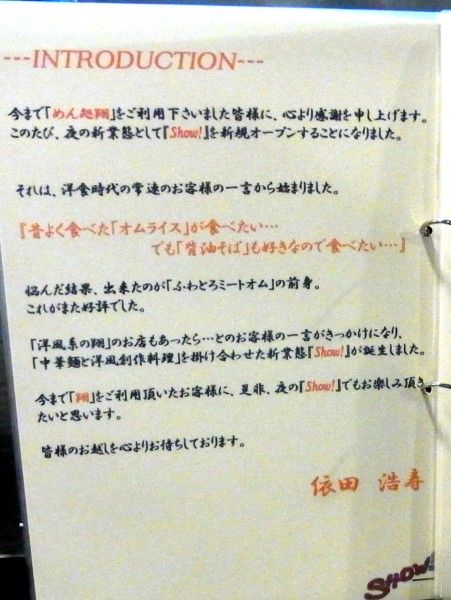 ---INTRODUCTION---
今まで「めん処翔」をご利用下さいました皆様に、心より感謝を申し上げます。
このたび、夜の新業態として『Show!』を新規オープンすることになりました。
それは、洋食時代の常連のお客様の一言から始まりました。
『昔よく食べた「オムライス」が食べたい…
でも「背油そば」も好きなので食べたい…』
悩んだ結果、出来たのが「ふわとろミートオム」の前身。
これがまた好評でした。
「洋風系の翔」のお店もあったら…とのお客様の一言がきっかけになり、
「中華麺と洋風創作料理」を掛け合わせた新業態『Show!』が誕生しました。
今まで「翔」をご利用頂いたお客様に、是非、夜の『Show!』でもお楽しみ頂き
たいと思います。
皆様のお越しを心よりお待ちしております。
依田 浩寿
SHOW!